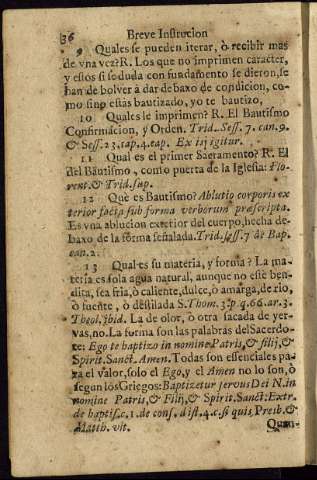 36 Breve Instrucion
9 Quales se pueden iterar, ò recibir mas
de vna vez? R. Los que no imprimen caracter,
y estos si se duda con fundamento se dieron, se
han de bolver à dar debaxo de condicion, co-
mo sino estàs bautizado, yo te bautizo,
10 Quales le imprimen? R. El Bautismo
Confirmacion, y Orden. Trid. Sess. 7. can. 9.
& Sess. 23. cap. 4. cap. Ex iis igitur.
11 Qual es el primer Sacramento? R. El
del Bautismo, como puerta de la Iglesia: Flo-
rent. & Trid. sup.
12 Què es Bautismo? Ablutio corporis ex
terior facta sub forma verborum præscripta.
Es vna ablucion exterior del cuerpo, hecha de-
baxo de la forma señalada. Trid. sess. 7 de Bap.
can. 2.
13 Qual es su materia, y forma? La ma-
teria es sola agua natural, aunque no estè ben-
dita, sea fria, ò caliente, dulce, ò amarga, de rio,
ò fuente, ò destilada S. Thom. 3. p q. 66. ar. 3.
Theol. ibid. La de olor, ò otra sacada de yer-
vas, no. La forma son las palabras del Sacerdo-
te: Ego te baptizo in nomine Patris, & filij, &
Spirit. Sanct. Amen. Todas son essenciales pa-
ra el valor, solo el Ego, y el Amen no lo son, ò
segun los Griegos: Baptizetur servus Dei N. in
nomine Patris, & Filij, & Spirit. Sanct. Extr.
de baptis. c. 1. de cons. dist. 4. c. si quis Presb. &
Matth. vlt.
Quan-